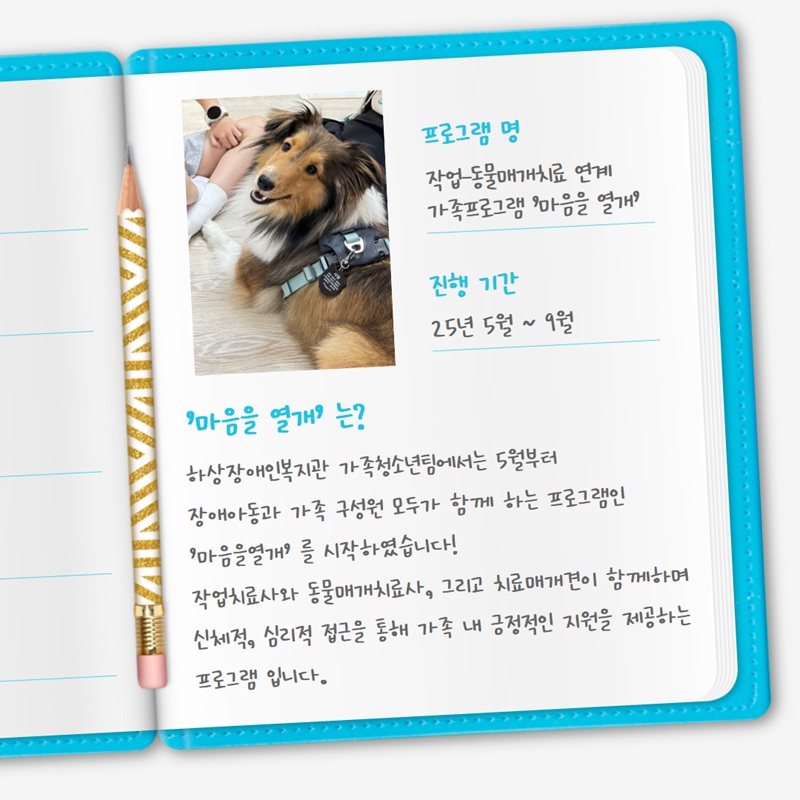 프로그램 명
작업-동물매개치료 연계
가족프로그램 '마음을 열개'
진행 기간
25년 5월 ~ 9월
'마음을 열개' 는?
하상장애인복지관 가족청소년팀에서는 5월부터
장애아동과 가족 구성원 모두가 함께 하는 프로그램인
'마음을열개' 를 시작하였습니다!
작업치료사와 동물매개치료사, 그리고 치료매개견이 함께하며
신체적, 심리적 접근을 통해 가족 내 긍정적인 지원을 제공하는
프로그램 입니다.